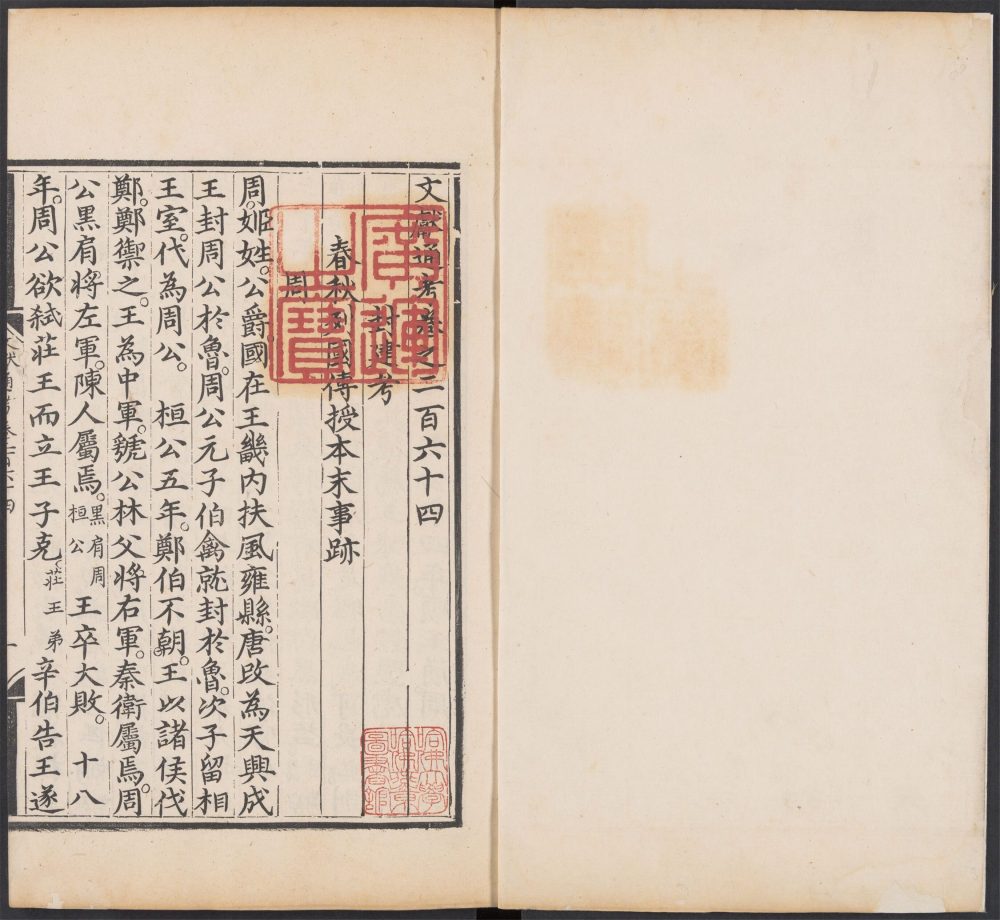 文獻通考卷之二百六十四
封建考
春秋列國傳授本末事跡
周
周。姬姓。公爵。國在王畿内扶風雍縣。唐改為天興。成
王封周公於魯。周公元子伯禽就封於魯。次子留相
王室。代為周公。　桓公五年。鄭伯不朝。王以諸侯伐
鄭。鄭禦之。王為中軍。虢公林父將右軍。秦衛屬焉。周
公黑肩將左軍。陳人屬焉。黑肩周桓公　王卒大敗。　十八
年。周公欲弒莊王而立王子克。莊王弟　辛伯告王遂
廣運之寶
哈佛大學哈佛燕京圖書館